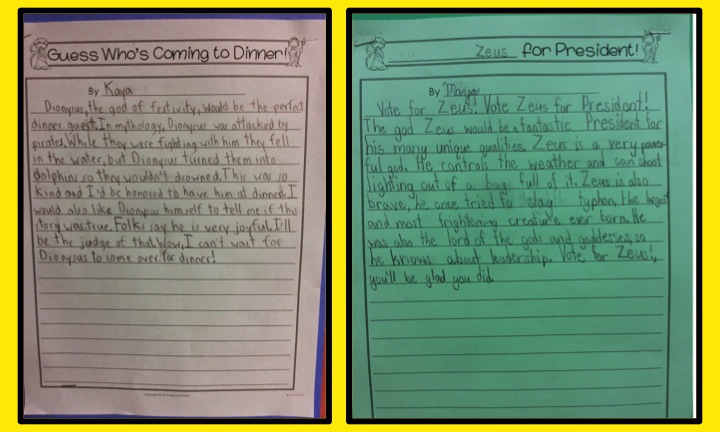 Guess Who's Coming to Dinner!
By Kaya
Dionysus, the god of festivity, would be the perfect
dinner guest. In mythology, Dionysus was attacked by
pirates. While they were fighting with him they fell
in the water, but Dionysus turned them into
dolphins so they wouldn't drowned. This was so
kind and I'd be honored to have him at dinner. I
would also like Dionysus himself to tell me if this
story was true. Folks say he is very joyful. I'll
be the judge of that. Wow, I can't wait for
Dionysus to come over for dinner!
Zeus for President!
By
Vote for Zeus! Vote Zeus for President!
The god Zeus would be a fantastic President for
his many unique qualities. Zeus is a very power-
ful god. He controls the weather and can shoot
lighting out of a bag full of it. Zeus is also
brave, he once tried to slay typhon, the largest
and most frightening creature ever born. He
was also the lord of the gods and goddesses, so
he knows about leadership. Vote for Zeus!,
you'll be glad you did.